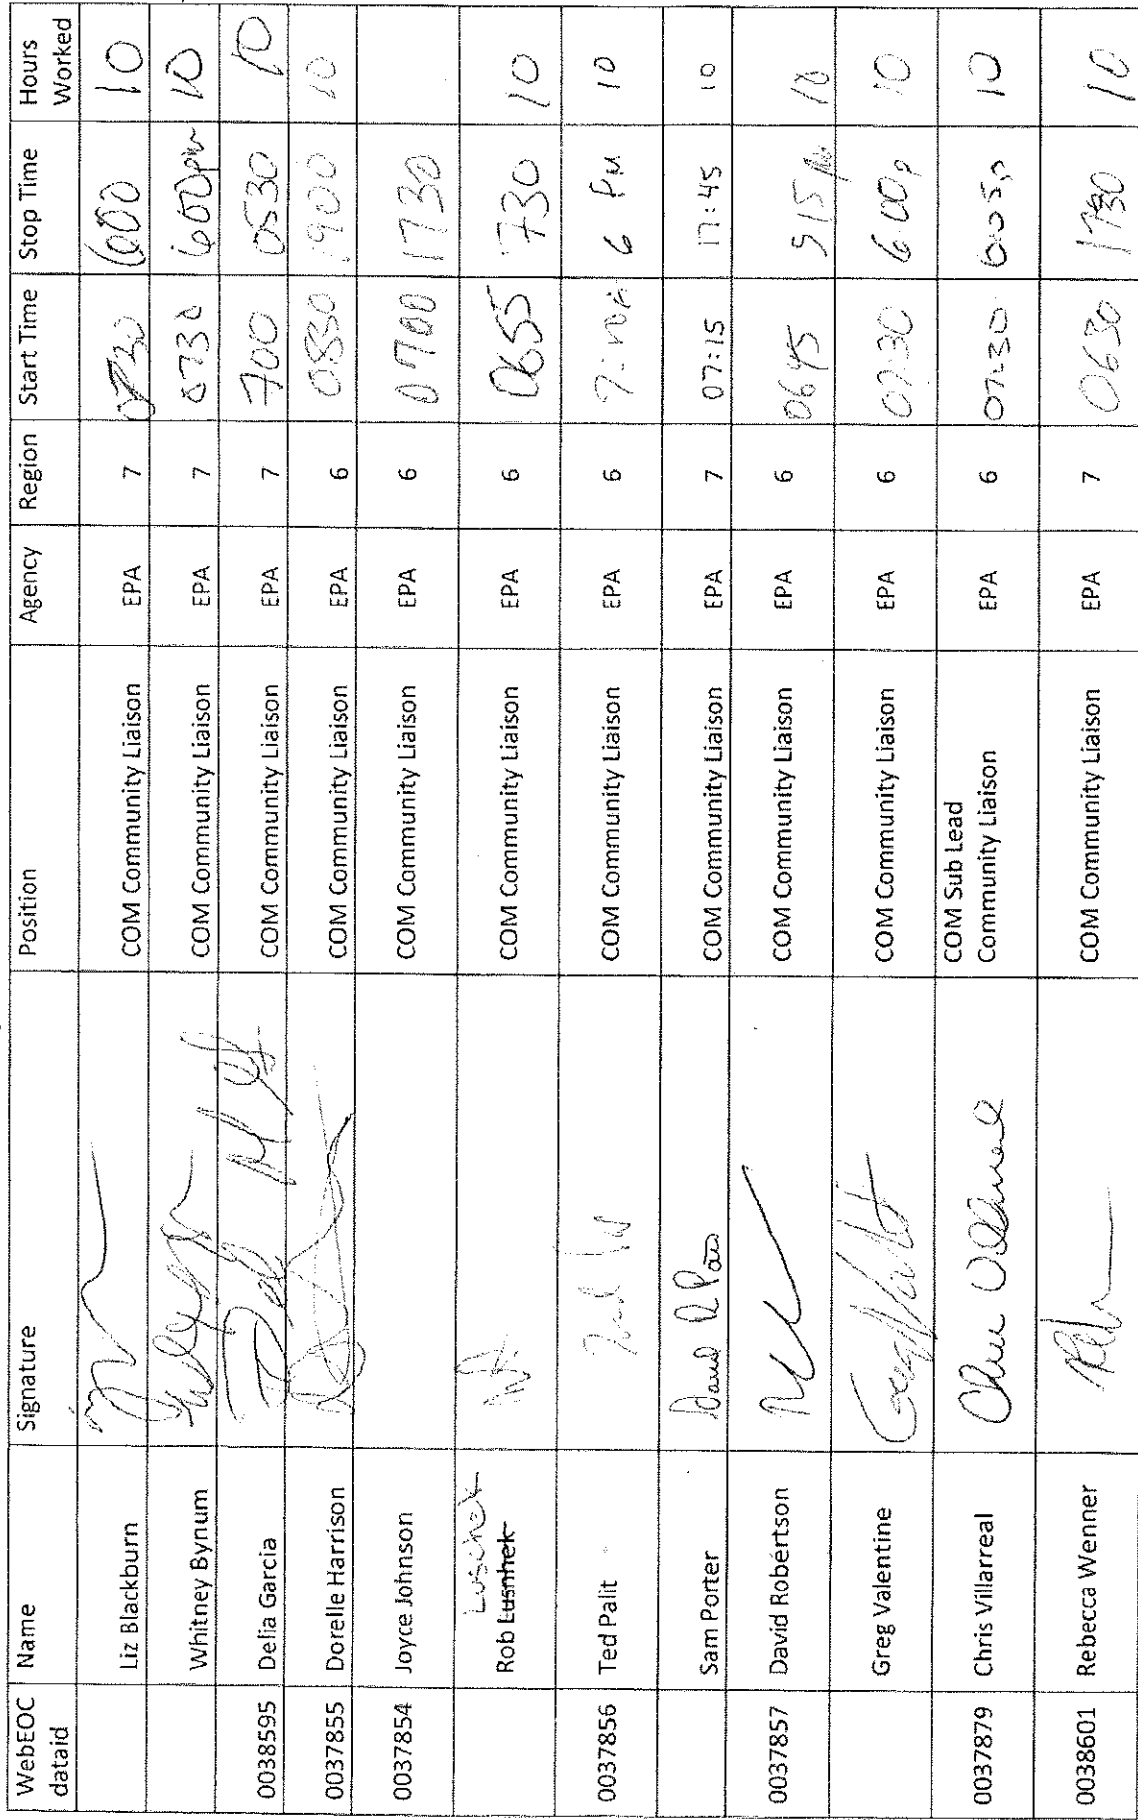 WebEOC dataid Name Signature Position Agency Region Start Time Stop Time Hours Worked
Liz Blackburn COM Community Liaison EPA 7 0730 600 10
Whitney Bynum COM Community Liaison EPA 7 0730 600pm 10
0038595 Delia Garcia COM Community Liaison EPA 7 700 0530 10
0037855 Dorelle Harrison COM Community Liaison EPA 6 0830 1900 10
0037854 Joyce Johnson COM Community Liaison EPA 6 0700 1730
Luschek
Rob Lusnhek COM Community Liaison EPA 6 0655 730 10
0037856 Ted Palit COM Community Liaison EPA 6 6 PM 10
Sam Porter COM Community Liaison EPA 7 07:15 17:45 10
0037857 David Robertson COM Community Liaison EPA 6 0645 515 pm 10
Greg Valentine COM Community Liaison EPA 6 07:30 6:00p 10
0037879 Chris Villarreal COM Sub Lead Community Liaison EPA 6 07:30 6:05p 10
0038601 Rebecca Wenner COM Community Liaison EPA 7 0630 1730 10